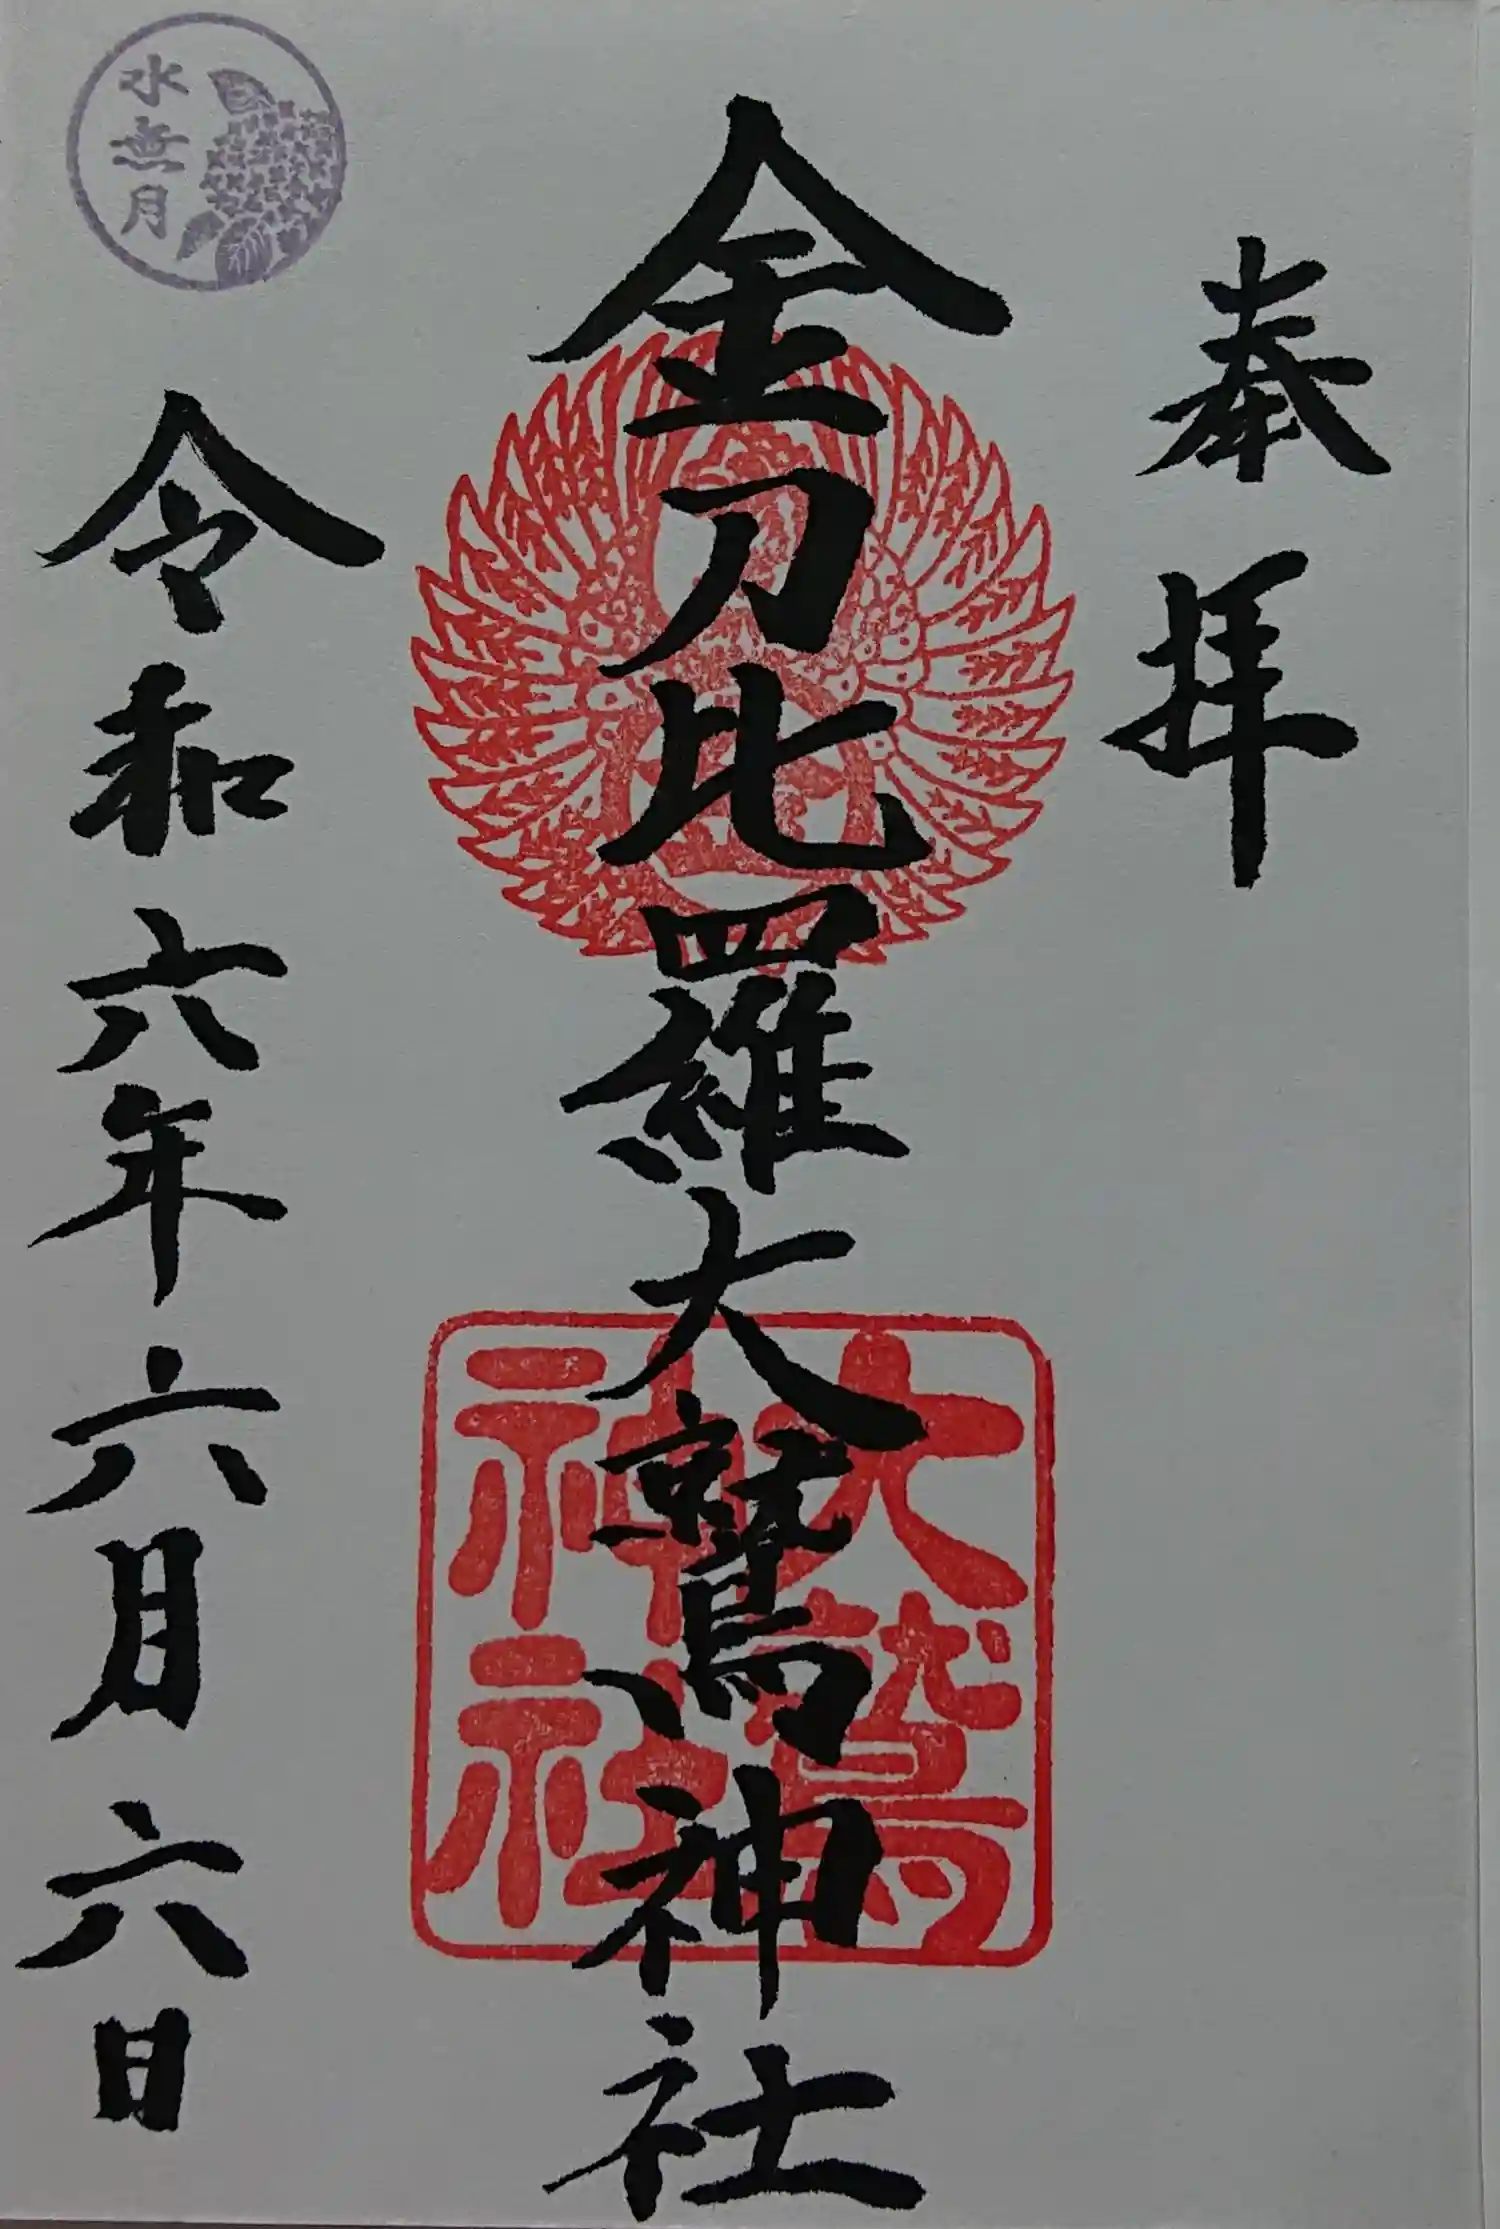 奉拝
金刀比羅大鷲神社
大鷲
神社
水無月
令和六年六月六日